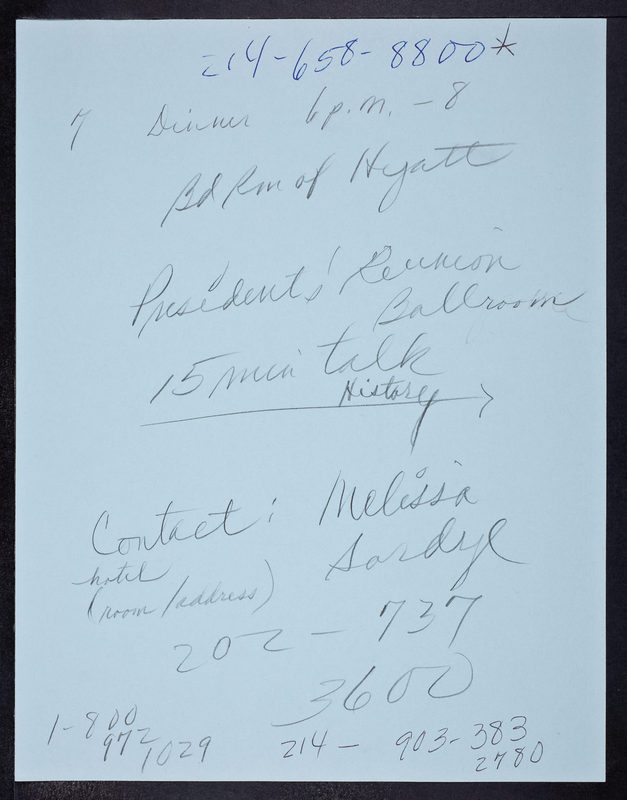 214-658-8800*
7 Dinner 6 p.m. - 8
Bd Rm of Hyatt
Presidents' Reunion
Ballroom
15 min talk
History
Contact: Melissa
hotel
(room/address)
202 - 737
3600
1-800
972
1029
214 - 903-383
2780